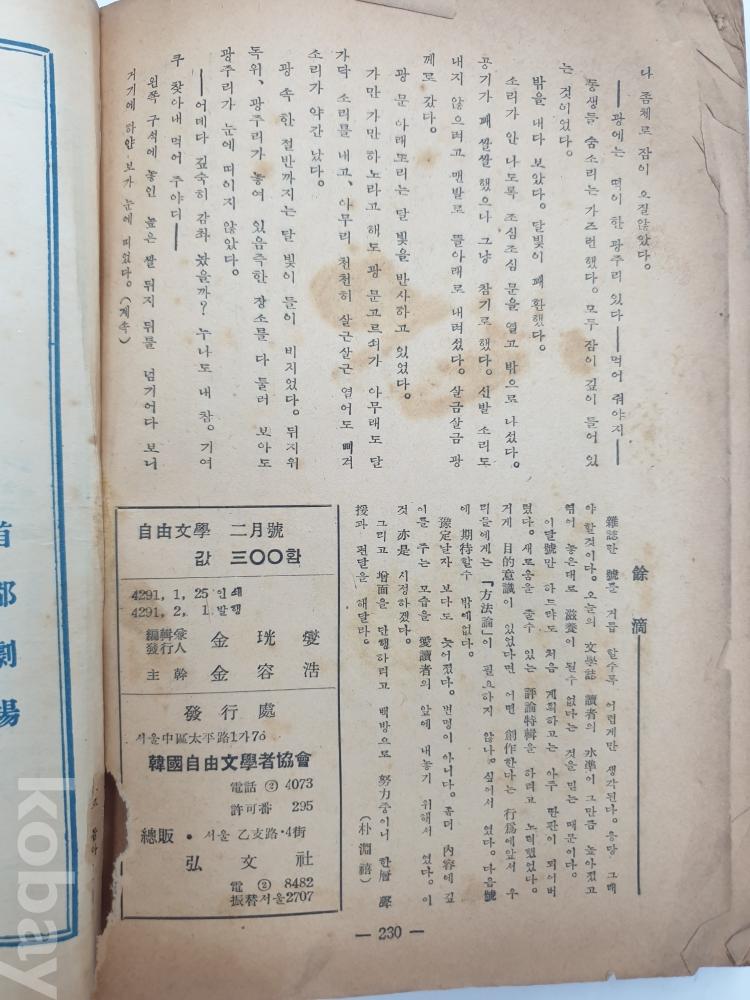 나 좀체로 잠이 오질않았다。
——광에는 떡이 한 광주리 있다——먹어 줘야지——
동생들 숨소리는 가즈런 했다。모두 잠이 깊이 들어 있
는 것이었다。
밖을 내다 보았다。달빛이 꽤 환했다。
소리가 안 나도록 조심조심 문을 열고 밖으로 나섰다。
공기가 꽤 쌀쌀했으나 그냥 참기로 했다。신발 소리도
내지 않으려고 맨발로 뜰아래로 내려섰다。살금살금 광
께로 갔다。
광 문 아래또리는 달 빛을 반사하고 있었다。
가만 가만 하노라고 해도 광 문고르쇠가 아무래도 달
가닥 소리를 내고、아무리 천천히 살근살근 열어도 삐걱
소리가 약간 났다。
광 속 한 절반까지는 달 빛이 들이 비치었다。뒤지위
독위、광주리가 놓여 있음즉한 장소를 다 둘러 보아도
광주리가 눈에 띠이지 않았다。
——어데다 깊숙히 감춰 놨을까? 누나도 내 참。기여
쿠 찾아내 먹어 주야디——
왼쪽 구석에 놓인 높은 쌀 뒤지 뒤를 넘기어다 보니
거기에 하얀 보가 눈에 띠었다。(계속)
餘滴
雜誌란 號를 거듭 할수록 어렵게만 생각된다。응당 그래
야 할것이다。오늘의 文學誌 讀者의 水準이 그만큼 높아졌고
엮어 놓은대로 滋養이 될수 없다는 것을 믿는 때문이다。
이달號만 하드라도 처음 계획하고는 아주 딴판이 되어버
렸다。새로움을 줄수 있는 評論特輯을 하려고 노력했었다。
거게 目的意識이 있었다면 어떤 創作한다는 行爲에앞서 우
리들에게는 「方法論」이 필요하지 않나。싶어서 였다。다음號
에 期待할수 밖에없다。
豫定날자 보다도 늦어졌다。변명이 아니다。좀더 內容에 깊
이를 주는 모습을 愛讀者의 앞에 내놓기 위해서 였다。이
것 亦是 시정하겠다。
그리고 增面을 단행하려고 백방으로 努力중이니 한層 聲
援과 편달을 해달라。
(朴淵禧)
自由文學 二月號
값 三〇〇환
4291, 1, 25 인쇄
4291, 2, 1 발행
編輯兼發行人 金珖燮
主幹 金容浩
發行處
서울中區太平路1가76
韓國自由文學者協會
電話 ② 4073
許可番 295
總販・서울 乙支路・4街
弘文社
電 ② 8482
振替서울2707
— 230 —
首都劇場
kobay